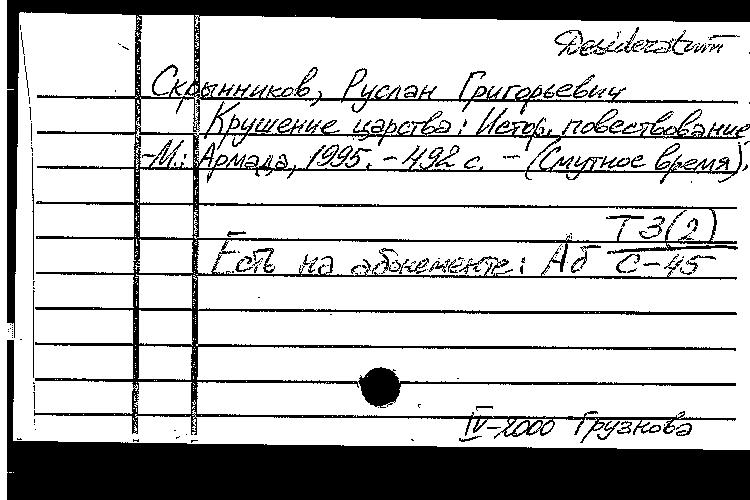 Desideratum
Скрынников, Руслан Григорьевич
Крушение царства: Истор. повествование.
-М.: Армада, 1995. - 492 с. - (Смутное время).
Т3(2)
Есть на абонементе: Аб С-45
IV-2000 Грузнова